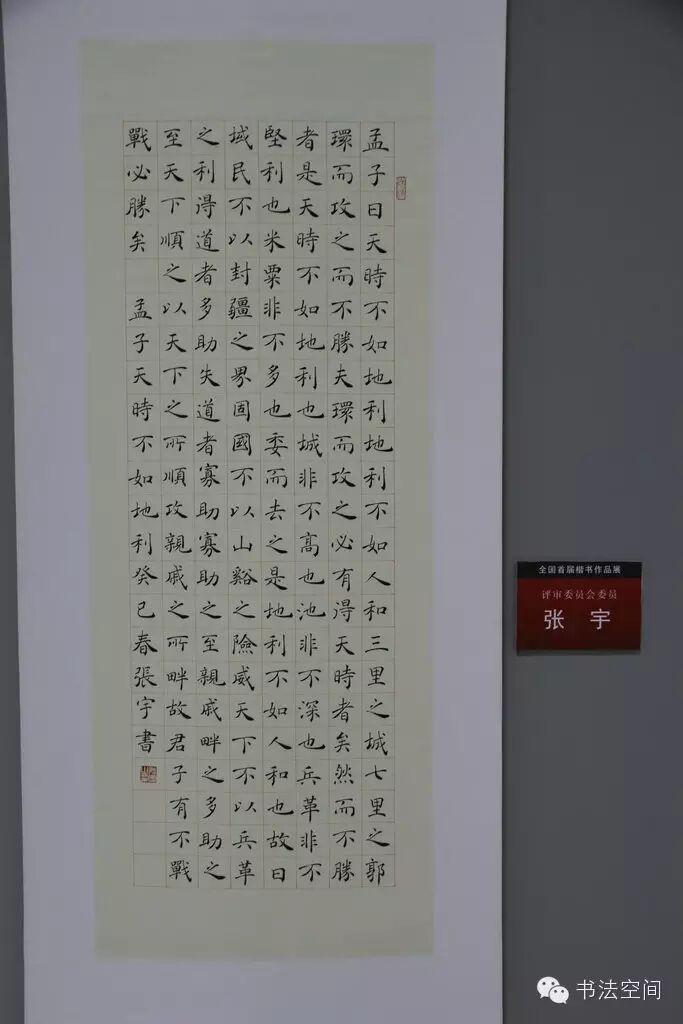 孟子曰天時不如地利地利不如人和三里之城七里之郭
環而攻之而不勝夫環而攻之必有得天時者矣然而不勝
者是天時不如地利也城非不高也池非不深也兵革非不
堅利也米粟非不多也委而去之是地利不如人和也故曰
域民不以封疆之界固國不以山谿之險威天下不以兵革
之利得道者多助失道者寡助寡助之至親戚畔之多助之
至天下順之以天下之所順攻親戚之所畔故君子有不戰
戰必勝矣 孟子天時不如地利癸巳春張宇書
全国首届楷书作品展
评审委员会委员
张 宇
书法空间